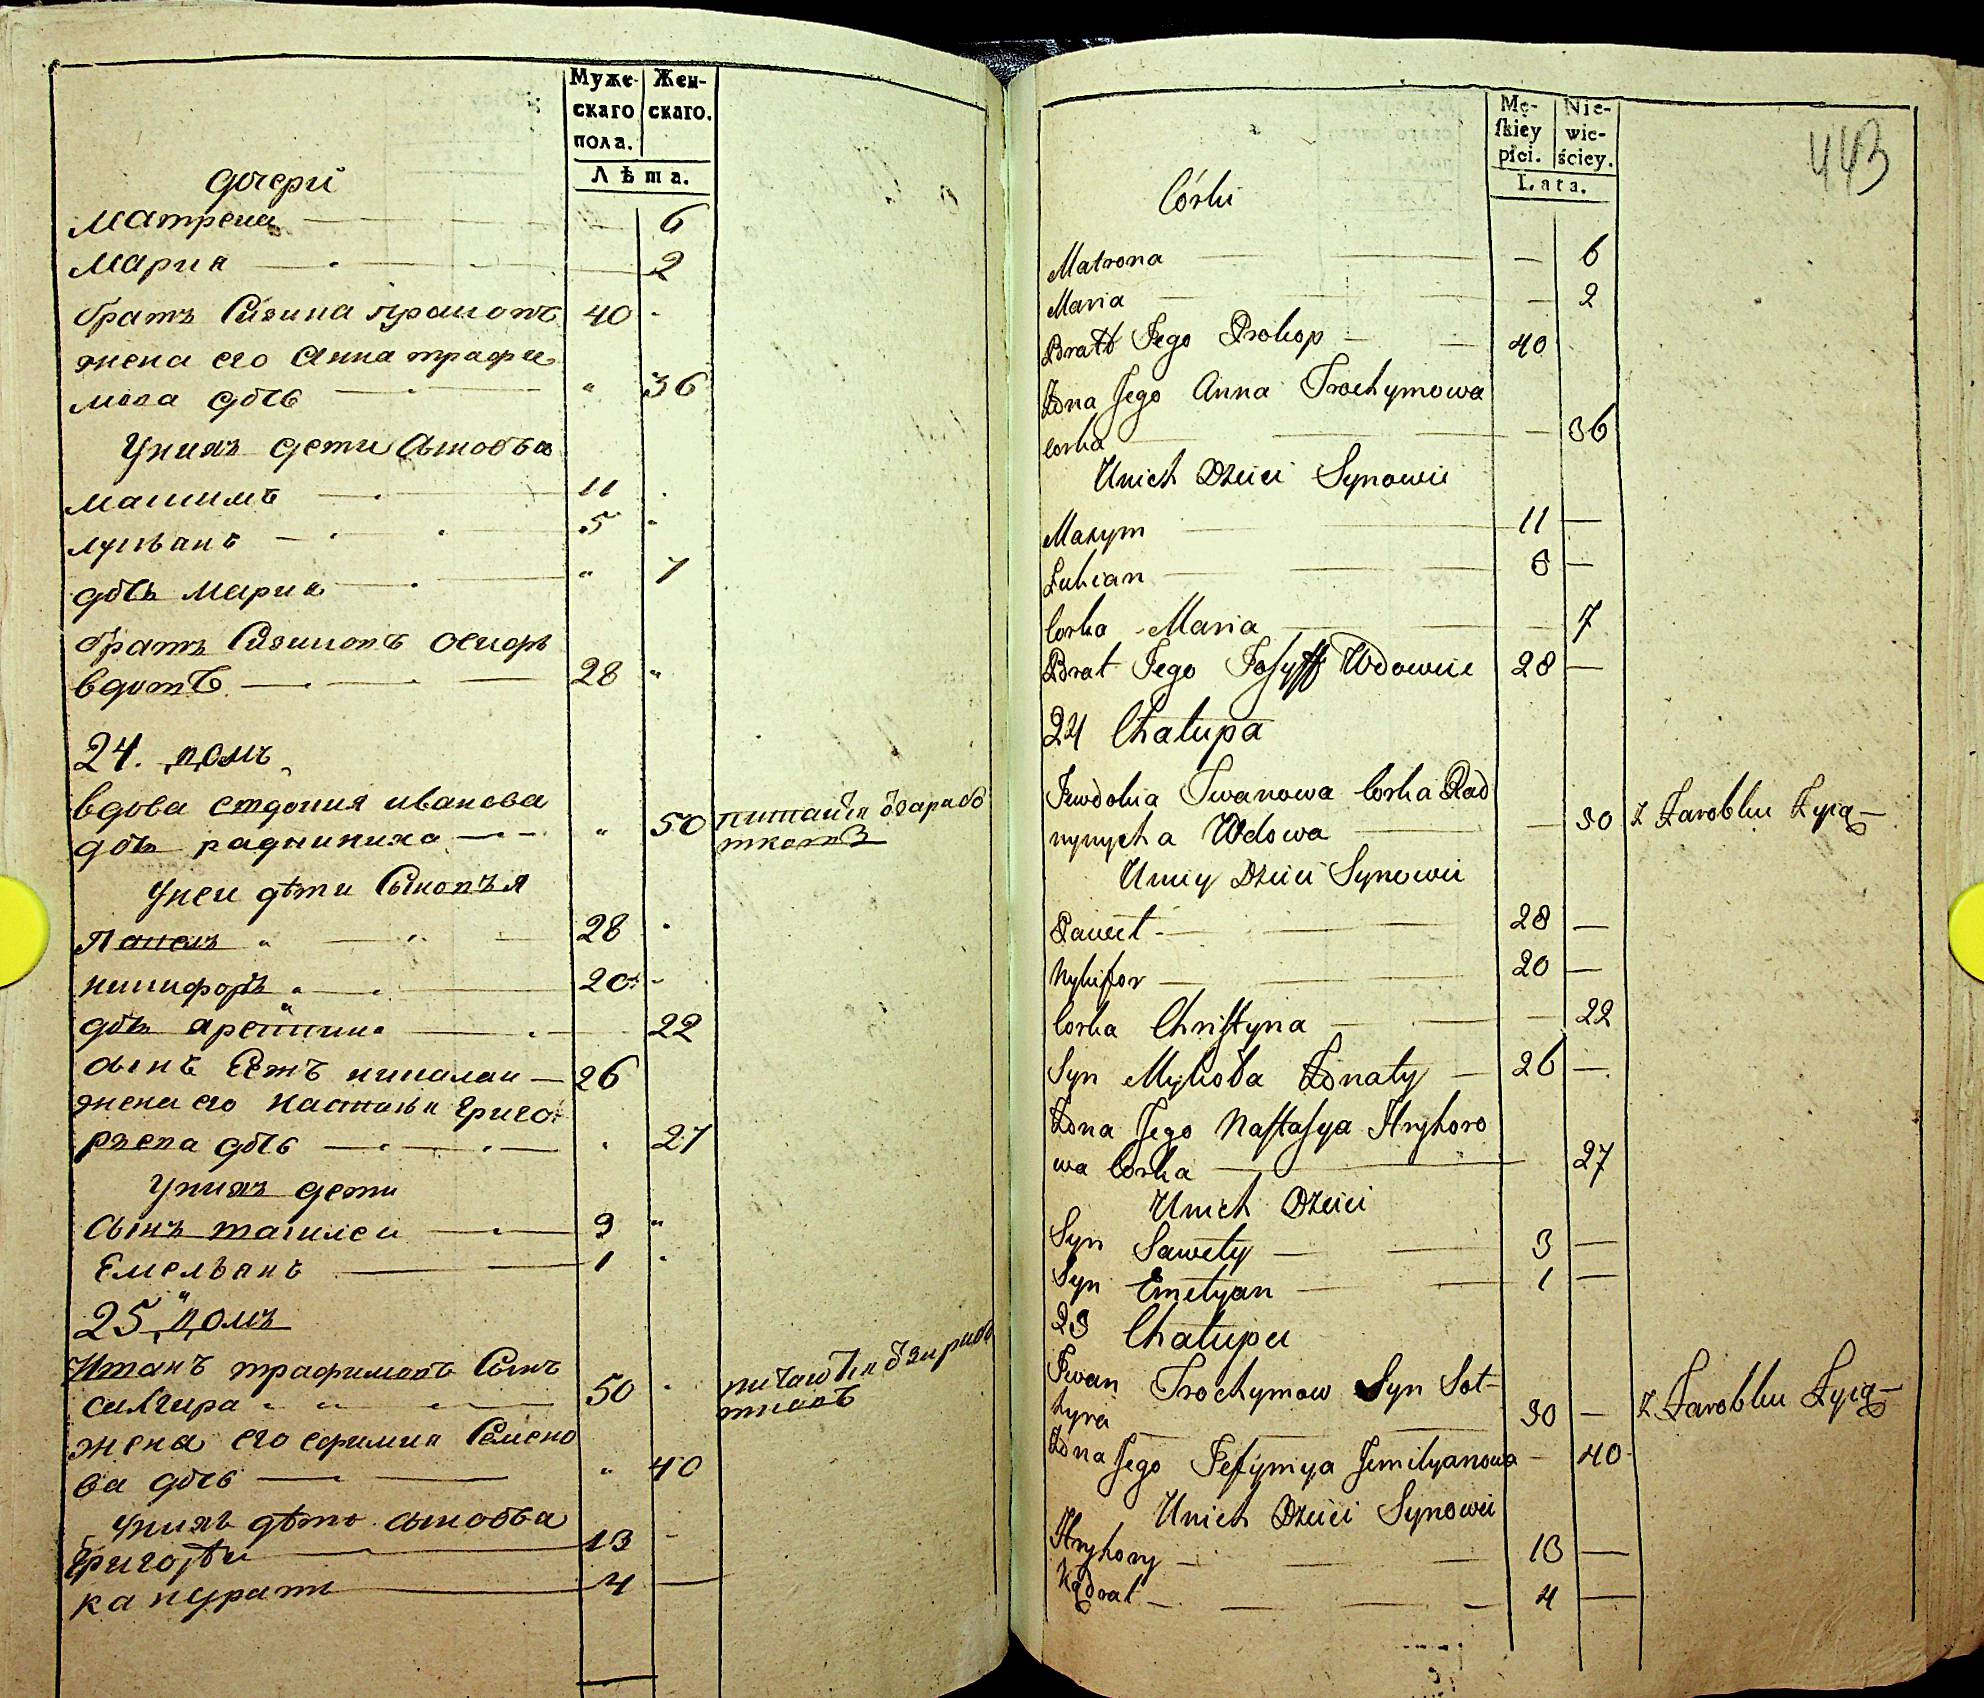 Муже-
скаго
пола.
Жен-
скаго.
Лѣта.
дочери
Матрена 6
Мария 2
братъ 40
жена его Анна трафи
мова дочь " 36
Унихъ дети Сыновья
11
5
дочь Мария " 7
братъ
28 "
24. домъ
вдова иванова
дочь " 50
Уней дѣти Сыновья
Павелъ 28
никифоръ 20
дочь 22
сынъ Его николаи 26
жена его Григо
рьева дочь 27
Унихъ дети
Сынъ 3 "
Емельянъ 1
25 домъ
Иванъ трафимовъ Сынъ
50
жена его ефимия Семено
ва дочь " 40
Унихъ дѣти сыновья
Григорѣи 13
4
Mę-
ſkiéy
płci.
Nie-
wie-
ściey.
Lata.
443
Córki
Matrona 6
Maria 2
Brat Jego Prokop 40
Żona Jego Anna Trochymowa
Corka 36
Unich Dzieci Synowie
Maxym 11
Łukian 5
Corka Maria 7
Brat Jego Jozyff Wdowiec 28
24 Chałupa
Jewdokia Iwanowa Corka Rad
nynycha Wdowa 50 Z Zarobku Żyią
Uniey Dzieci Synowie
Paweł 28
Nykifor 20
Corka Chriſtyna 22
Syn Mykoła Żonaty 26
Żona Jego Naſtaſya Hryhoro
wa Corka 27
Unich Dzieci
Syn Sawely 3
Syn Emelyan 1
25 Chałupa
Iwan Trochymow Syn Sot-
50 Z Zarobku Żyią
Żona Jego Jefymya Jemilyanowa 40
Unich Dzieci Synowie
Hryhory 13
Kądrat 4